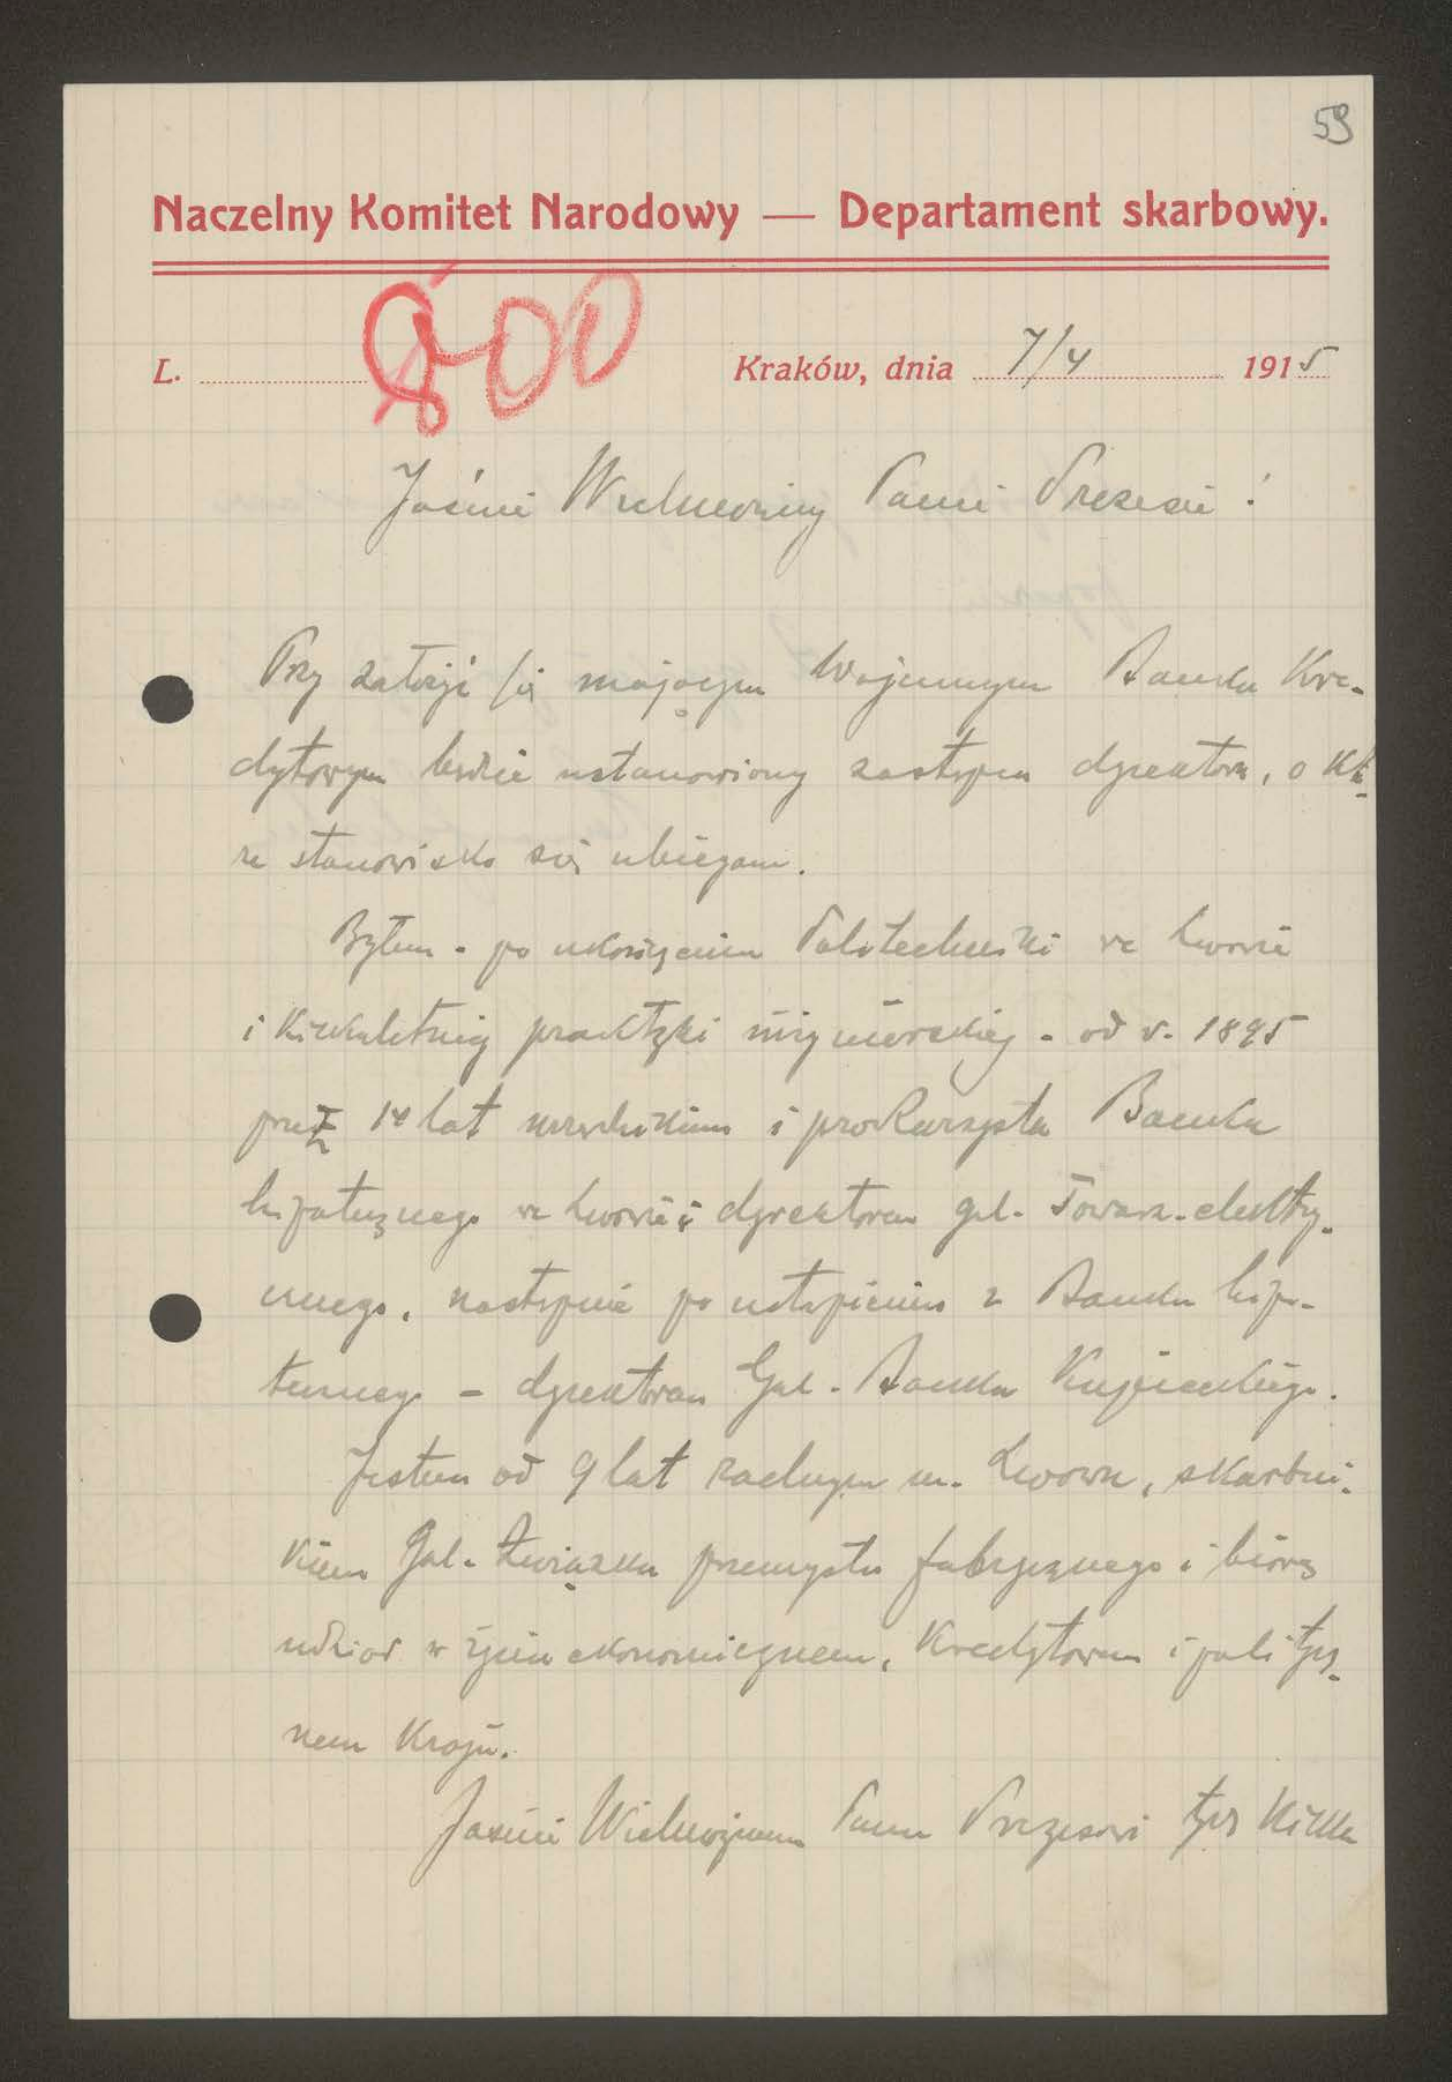 59
Naczelny Komitet Narodowy — Departament skarbowy.
800
L. Kraków, dnia 7/4 1915
Jaśnie Wielmożny Panie Prezesie!
Przy założyć się mającym Wojennym Banku Kre-
dytowym będzie ustanowiony zastępca dyrektora, o któ-
re stanowisko się ubiegam.
Byłem - po ukończeniu Politechniki we Lwowie
i kilkuletniej praktyki inżynierskiej - od r. 1895
przez 14 lat urzędnikiem i prokurzystą Banku
hipotecznego we Lwowie i dyrektorem gal. Towarz. elektry-
cznego, następnie po ustąpieniu z Banku hipo-
tecznego - dyrektorem Gal. Banku Kupieckiego.
Jestem od 9 lat radnym m. Lwowa, skarbni-
kiem Gal. Związku przemysłu fabrycznego i biorę
udział w życiu ekonomicznem, kredytowem i polity-
cznem Kraju.
Jaśnie Wielmożnemu Panu Prezesowi tych kilka